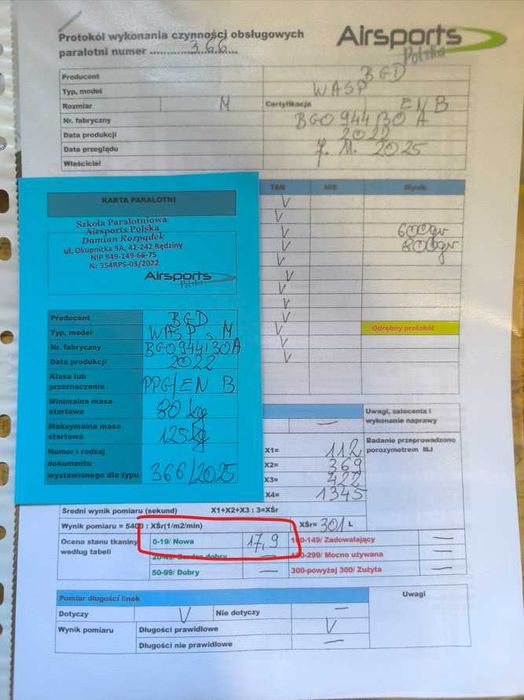 Protokół wykonania czynności obsługowych
paralotni numer ............366...
Airsports
Polska
Producent BGD
Typ, model WASP
Rozmiar M Certyfikacja EN B
Nr. fabryczny BGO944130A
Data produkcji 2022
Data przeglądu 7. 11. 2025
Właściciel
TAK NIE Wynik
V
V
V 600gr
V 800gr
V
V
V
V
V
V Odrębny protokół
V
V
KARTA PARALOTNI
Szkoła Paralotniowa
Airsports Polska
Damian Rozpądek
ul. Okupnicka 9A, 42-242 Rędziny
NIP 949-149-66-75
Nr 354RPS-03/2022
Airsports
Polska
Producent BGD
Typ, model WASP s M
Nr. fabryczny BGO944130A
Data produkcji 2022
Klasa lub
przeznaczenie PPG/EN B
Minimalna masa
startowa 80 kg
Maksymalna masa
startowa 125kg
Numer i rodzaj
dokumentu
wystawionego dla typu 366/2025
Uwagi, zalecenia i
wykonanie naprawy
X1= 112
X2= 369
X3= 422
X4= 1345
Badanie przeprowadzono
porozymetrem MJ
Średni wynik pomiaru (sekund) X1+X2+X3 : 3=XŚr
Wynik pomiaru = 5400 : XŚr(1/m2/min) XŚr= 301 L
Ocena stanu tkaniny
według tabeli
0-19/ Nowa 17,9
100-149/ Zadowalający
Bardzo dobry
-299/ Mocno używana
50-99/ Dobry
300-powyżej 300/ Zużyta
Pomiar długości linek Uwagi
Dotyczy V Nie dotyczy —
Wynik pomiaru Długości prawidłowe V
Długości nie prawidłowe —